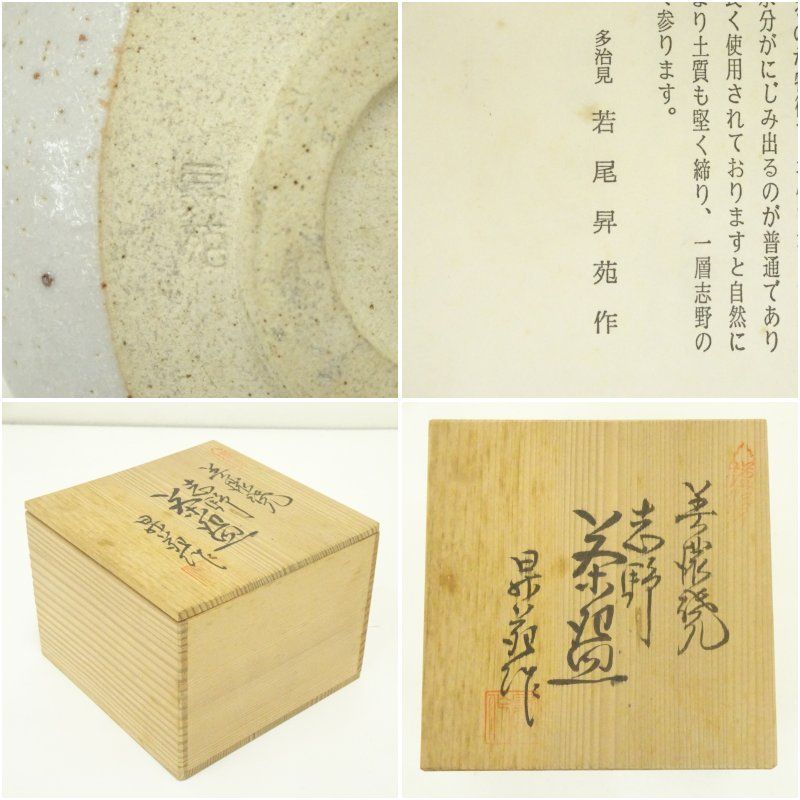 水分がにじみ出るのが普通であり
良く使用されておりますと自然に
より土質も堅く締り、一層志野の
参ります。
多治見 若尾昇苑作
美濃焼
志野
茶盌
昇苑作
美濃焼
志野
茶盌
昇苑作